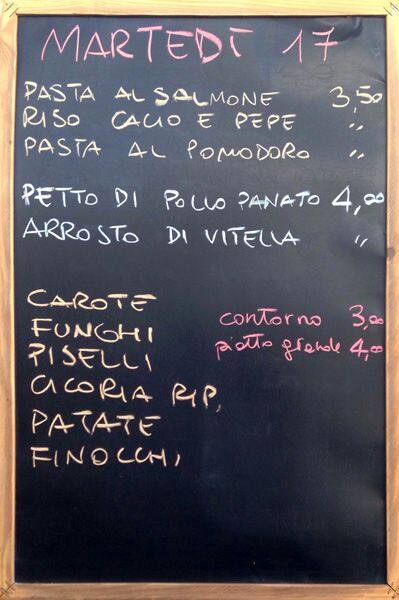 MARTEDÌ 17
PASTA AL SALMONE 3,50
RISO CACIO E PEPE "
PASTA AL POMODORO "
PETTO DI POLLO PANATO 4,00
ARROSTO DI VITELLA "
CAROTE
FUNGHI contorno 3,00
PISELLI piatto grande 4,00
CICORIA RIP.
PATATE
FINOCCHI